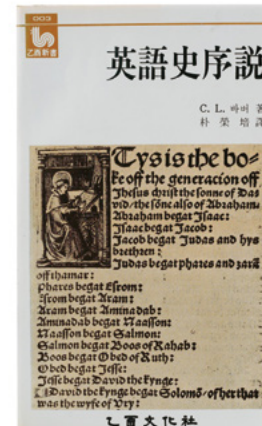 003
乙酉新書
英語史序説
C. L. 바버 著
朴 榮 培 譯
Tysis the bo⸗
ke off the generacion off
Jhesus christ the sonne of Da⸗
vid/the sone also of Abraham⸗
Abraham begat Isaac:
Isaac begat Jacob:
Jacob begat Judas and hys
brethren:
Judas begat phares and zara
off thamar:
phares begat Esrom:
Esrom begat Aram:
Aram begat Aminadab:
Aminadab begat Naasson:
Naasson begat Salmon:
Salmon begat Boos of Rahab:
Boos begat Obed of Ruth:
Obed begat Jesse:
Jesse begat David the kynge:
David the kynge begat Solomō/of her that
was the wyfe of Vry:
乙酉文化社